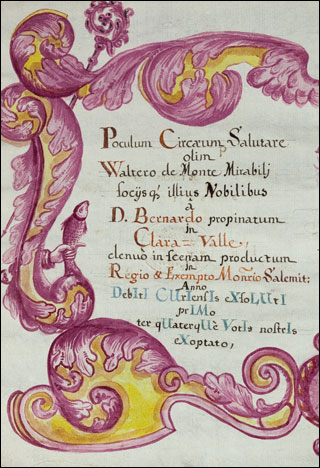 Poculum Circæum Salutare
olim
Waltero de Monte Mirabilj
socÿsq' illius Nobilibus
â
D. Bernardo propinatum
in
Clara = Valle,,
denuò in scenam productum
in
Regio & Exempto Mon:rio Salemit:
Anno
DebItI CUrIensIs eXsoLUtI
prIMo
ter qUaterqUè VotIs nostrIs
eXoptato,